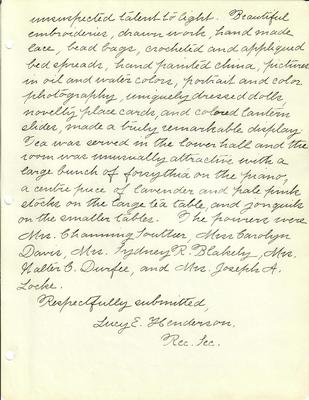 unsuspected talent to light. Beautiful
embroideries, drawn work, hand made
lace, bead bags, crocheted and appliqued
bed spreads, hand painted china, pictures
in oil and water colors, portrait and color
photography, uniquely dressed dolls,
novelty place cards, and colored lantern
slides, made a truly remarkable display.
Tea was served in the lower hall and the
room was unusually attractive with a
large bunch of forsythia on the piano,
a centre piece of lavender and pale pink
stocks on the large tea table, and jonquils
on the smaller tables. The pourers were
Mrs. Channing Souther, Miss Carolyn
Davis, Mrs. Sydney R. Blakely, Mrs.
Walter C. Durfee, and Mrs. Joseph A.
Locke.
Respectfully submitted,
Lucy E. Henderson.
Rec. Sec.